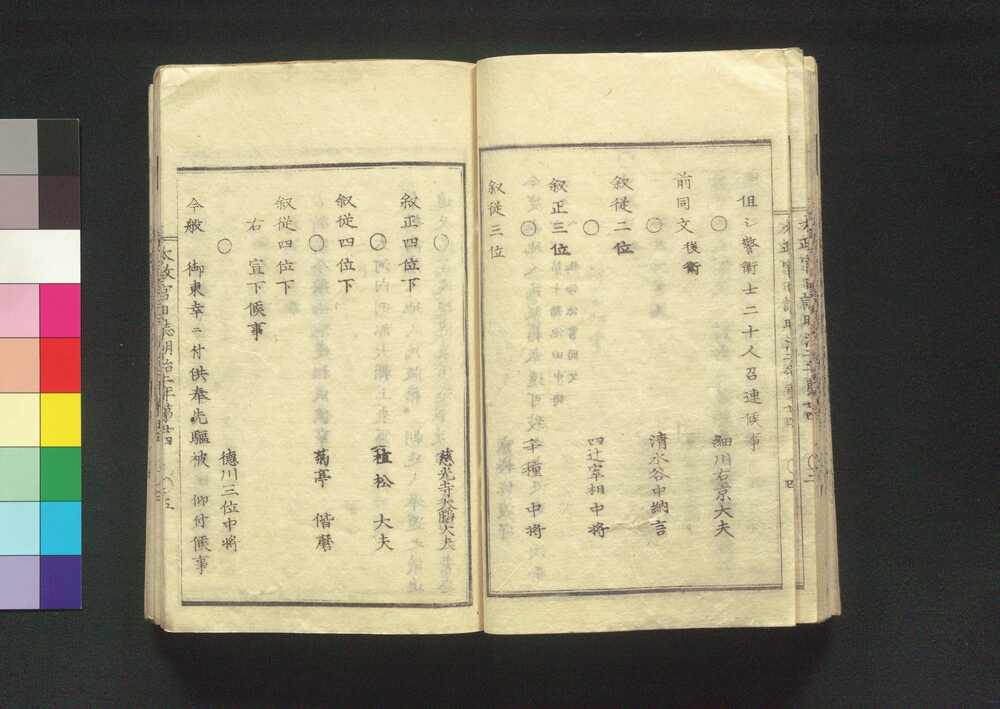 但シ警衛士二十人召連候事
○ 細川右京大夫
前同文後衛
○ 清水谷中納言
叙従二位
○ 四辻宰相中将
叙正三位
○ 千種中将
叙従三位
○ 慈光寺大夫
叙正四位下
○ 植松 大夫
叙従四位下
○ 菊亭 偕麿
叙従四位下
右 宣下候事
○ 徳川三位中将
今般 御東幸ニ付供奉先驅被 仰付候事
太政官日誌明治二年第廿四